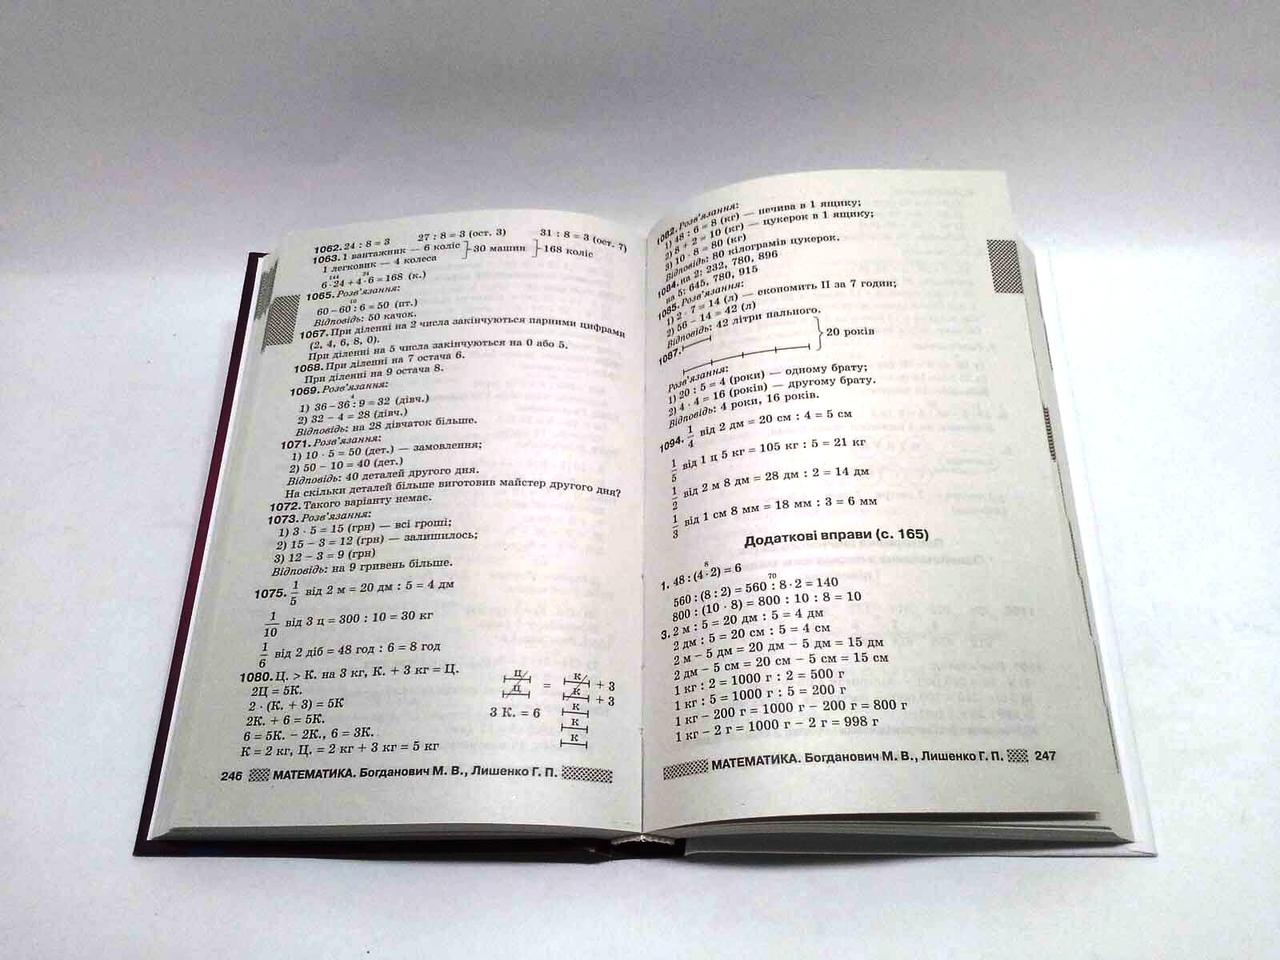 1062. 24 : 8 = 3 27 : 8 = 3 (ост. 3) 31 : 8 = 3 (ост. 7)
1063. 1 вантажник — 6 коліс } 30 машин } 168 коліс
1 легковик — 4 колеса
144 24
6 · 24 + 4 · 6 = 168 (к.)
1065. Розв'язання:
10
60 – 60 : 6 = 50 (шт.)
Відповідь: 50 качок.
1067. При діленні на 2 числа закінчуються парними цифрами
(2, 4, 6, 8, 0).
При діленні на 5 числа закінчуються на 0 або 5.
1068. При діленні на 7 остача 6.
При діленні на 9 остача 8.
1069. Розв'язання:
4
1) 36 – 36 : 9 = 32 (дівч.)
2) 32 – 4 = 28 (дівч.)
Відповідь: на 28 дівчаток більше.
1071. Розв'язання:
1) 10 · 5 = 50 (дет.) — замовлення;
2) 50 – 10 = 40 (дет.)
Відповідь: 40 деталей другого дня.
На скільки деталей більше виготовив майстер другого дня?
1072. Такого варіанту немає.
1073. Розв'язання:
1) 3 · 5 = 15 (грн) — всі гроші;
2) 15 – 3 = 12 (грн) — залишилось;
3) 12 – 3 = 9 (грн)
Відповідь: на 9 гривень більше.
1075. 1/5 від 2 м = 20 дм : 5 = 4 дм
1/10 від 3 ц = 300 : 10 = 30 кг
1/6 від 2 діб = 48 год : 6 = 8 год
1080. Ц. > К. на 3 кг, К. + 3 кг = Ц.
2Ц = 5К.
2 · (К. + 3) = 5К
2К. + 6 = 5К.
6 = 5К. – 2К., 6 = 3К.
К = 2 кг, Ц. = 2 кг + 3 кг = 5 кг
Ц = К + 3
Ц К + 3
3 К. = 6 К
К
К
246 МАТЕМАТИКА. Богданович М. В., Лишенко Г. П.
1082. Розв'язання:
1) 48 : 6 = 8 (кг) — печива в 1 ящику;
2) 8 + 2 = 10 (кг) — цукерок в 1 ящику;
3) 10 · 8 = 80 (кг)
Відповідь: 80 кілограмів цукерок.
1084. на 2: 232, 780, 896
на 5: 645, 780, 915
1085. Розв'язання:
1) 2 · 7 = 14 (л) — економить ІІ за 7 годин;
2) 56 – 14 = 42 (л)
Відповідь: 42 літри пального.
1087. } 20 років
Розв'язання:
1) 20 : 5 = 4 (роки) — одному брату;
2) 4 · 4 = 16 (років) — другому брату.
Відповідь: 4 роки, 16 років.
1094. 1/4 від 2 дм = 20 см : 4 = 5 см
1/5 від 1 ц 5 кг = 105 кг : 5 = 21 кг
1/2 від 2 м 8 дм = 28 дм : 2 = 14 дм
1/3 від 1 см 8 мм = 18 мм : 3 = 6 мм
Додаткові вправи (с. 165)
8
1. 48 : (4 · 2) = 6
70
560 : (8 : 2) = 560 : 8 · 2 = 140
800 : (10 · 8) = 800 : 10 : 8 = 10
3. 2 м : 5 = 20 дм : 5 = 4 дм
2 дм : 5 = 20 см : 5 = 4 см
2 м – 5 дм = 20 дм – 5 дм = 15 дм
2 дм – 5 см = 20 см – 5 см = 15 см
1 кг : 2 = 1000 г : 2 = 500 г
1 кг : 5 = 1000 г : 5 = 200 г
1 кг – 200 г = 1000 г – 200 г = 800 г
1 кг – 2 г = 1000 г – 2 г = 998 г
МАТЕМАТИКА. Богданович М. В., Лишенко Г. П. 247